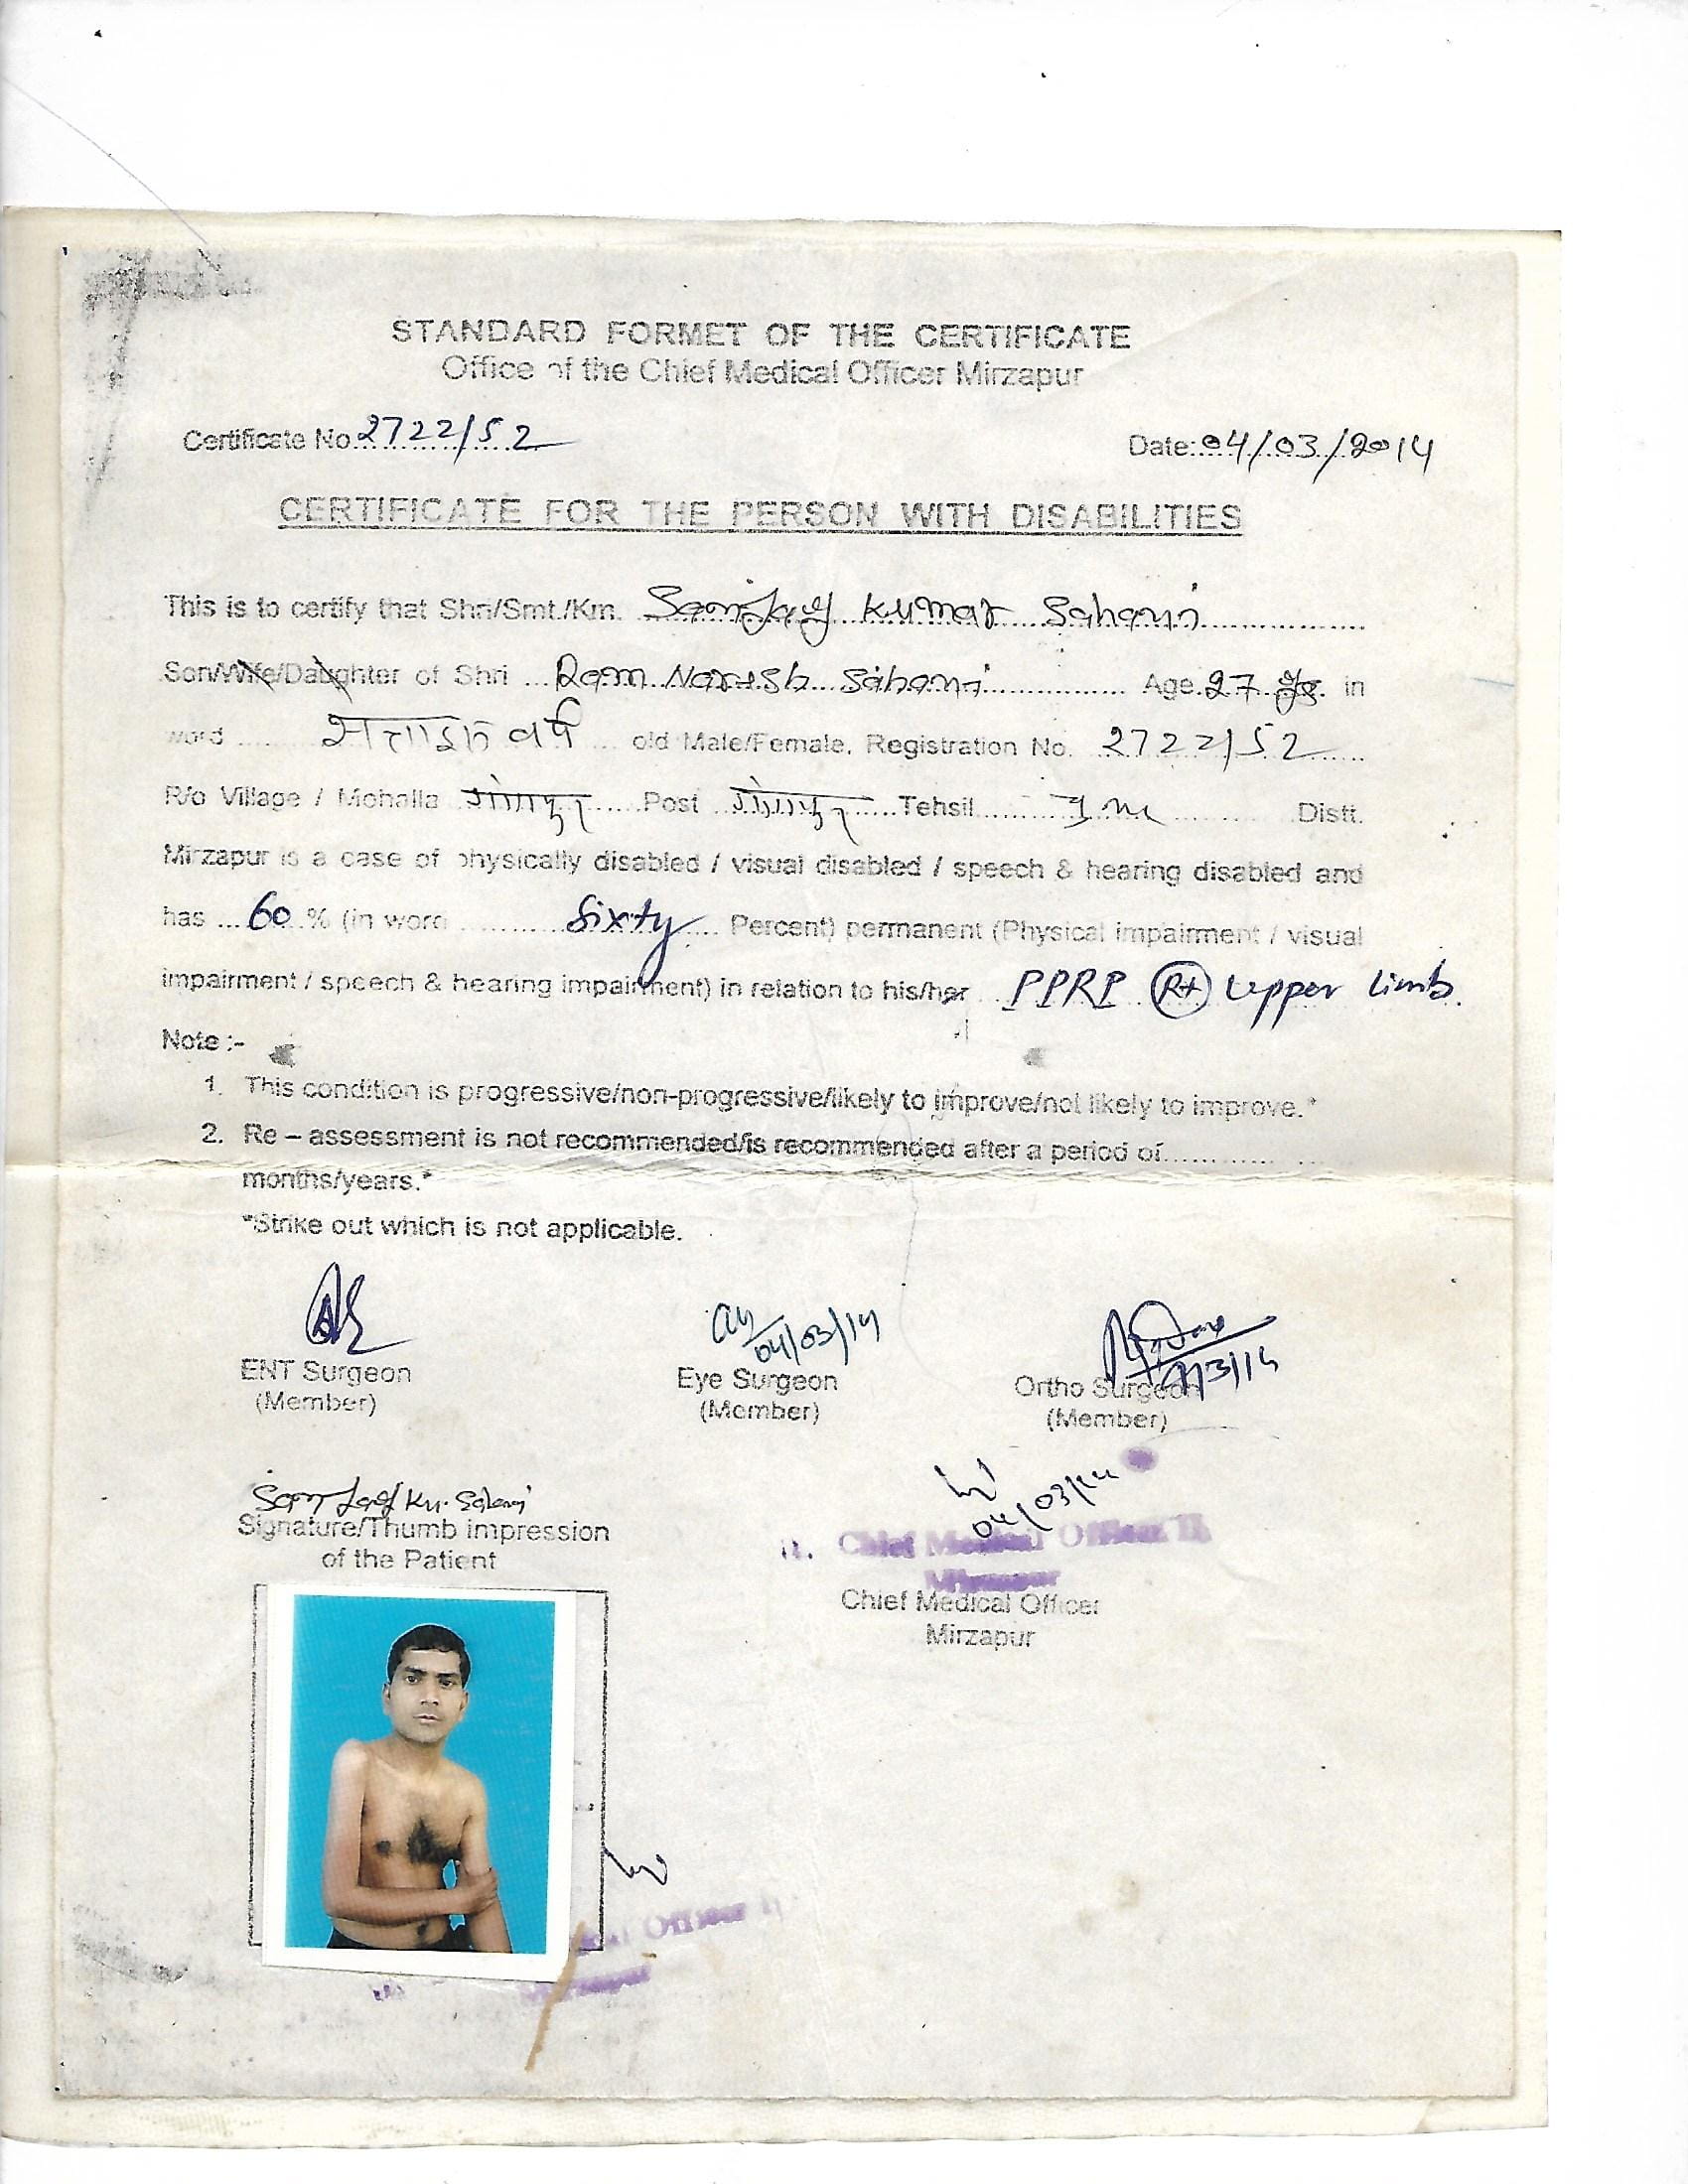 STANDARD FORMET OF THE CERTIFICATE
Office of the Chief Medical Officer Mirzapur
Certificate No. 2722/52 Date: 04/03/2014
CERTIFICATE FOR THE PERSON WITH DISABILITIES
This is to certify that Shri/Smt./Km. Sanjay Kumar Sahani
Son/Wife/Daughter of Shri Ram Naresh Sahani Age 27 yrs. in
word सत्ताइस वर्ष old Male/Female, Registration No. 2722/52
R/o Village / Mohalla Post Tehsil Distt.
Mirzapur is a case of physically disabled / visual disabled / speech & hearing disabled and
has 60 % (in word Sixty Percent) permanent (Physical impairment / visual
impairment / speech & hearing impairment) in relation to his/her PPRP Rt Upper limb.
Note :-
1. This condition is progressive/non-progressive/likely to improve/not likely to improve.*
2. Re – assessment is not recommended/is recommended after a period of
months/years.*
*Strike out which is not applicable.
04/03/14
ENT Surgeon Eye Surgeon Ortho Surgeon
(Member) (Member) (Member)
04/03/14
Sanjay Ku. Sahani
Signature/Thumb impression
of the Patient
Chief Medical Officer
Mirzapur
Chief Medical Officer
Mirzapur
Officer